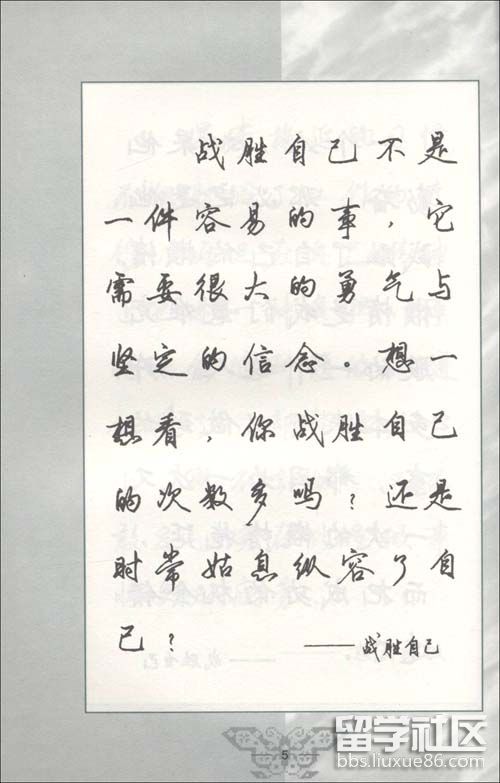 战胜自己不是
一件容易的事，它
需要很大的勇气与
坚定的信念。想一
想看，你战胜自己
的次数多吗？还是
时常姑息纵容了自
己？
——战胜自己
5
留学社区
bbs.liuxue86.com